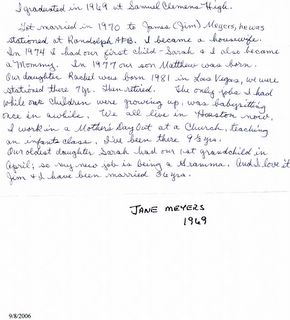 I graduated in 1969 at Samuel Clemens High.
Got married in 1970 to James (Jim) Meyers, he was
stationed at Randolph AFB. I became a housewife.
In 1974 I had our first child - Sarah & I also became
a Mommy. In 1977 our son Matthew was born.
Our daughter Rachel was born 1981 in Las Vegas, we were
stationed there 7yr. Then retired. The only jobs I had
while our children were growing up, was babysitting
once in awhile. We all live in Houston now.
I work in a Mother's Day Out at a Church, teaching
an infants class. I've been there 9½ yrs.
Our oldest daughter Sarah had our 1st grandchild in
April, so my new job is being a Gramma. And I love it
Jim & I have been married 36 yrs.
JANE MEYERS
1969
9/8/2006